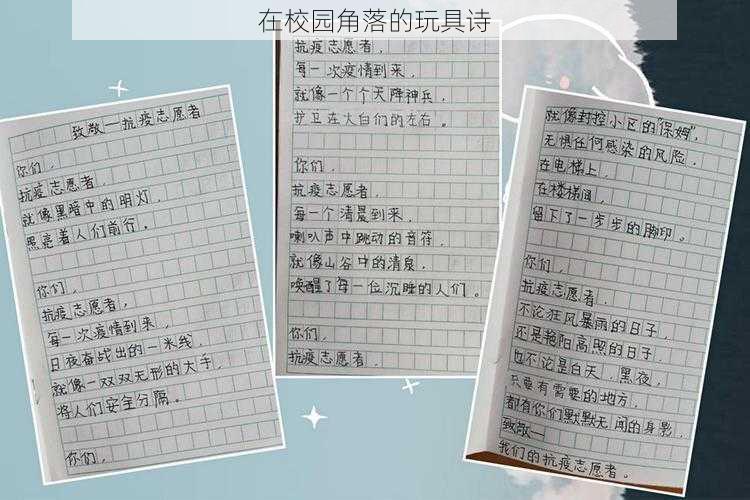 在校园角落的玩具诗
致敬一抗疫志愿者
你们，
抗疫志愿者，
就像黑暗中的明灯，
照亮着人们前行。
你们，
抗疫志愿者，
每一次疫情到来，
日夜奋战出的一米线，
就像一双双无形的大手，
将人们安全分隔。
你们，
抗疫志愿者，
每一次疫情到来，
就像一个个天降神兵，
护卫在大白们的左右。
你们，
抗疫志愿者，
每一个清晨到来，
喇叭声中跳动的音符，
就像山谷中的清泉，
唤醒了每一位沉睡的人们。
你们，
抗疫志愿者，
就像封控小区的"保姆"，
无惧任何感染的风险，
在电梯上，
在楼梯间，
留下了一步步的脚印。
你们，
抗疫志愿者，
不论狂风暴雨的日子，
还是艳阳高照的日子，
也不论是白天、黑夜，
只要有需要的地方，
都有你们默默无闻的身影，
致敬一
我们的抗疫志愿者。